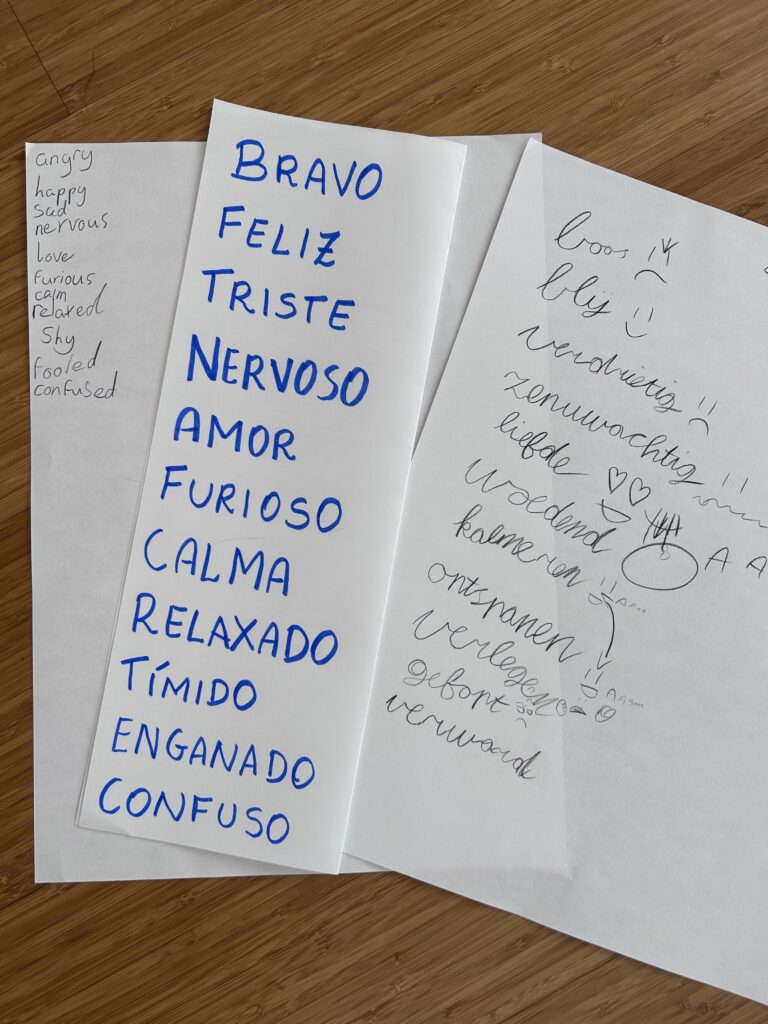 angry
happy
sad
nervous
love
furious
calm
relaxed
Shy
fooled
confused
BRAVO
FELIZ
TRISTE
NERVOSO
AMOR
FURIOSO
CALMA
RELAXADO
TÍMIDO
ENGANADO
CONFUSO
boos
blij
verdrietig
zenuwachtig
liefde
woedend A A
kalmeren A A
ontspanen
verlegen A A
gefopt
verward